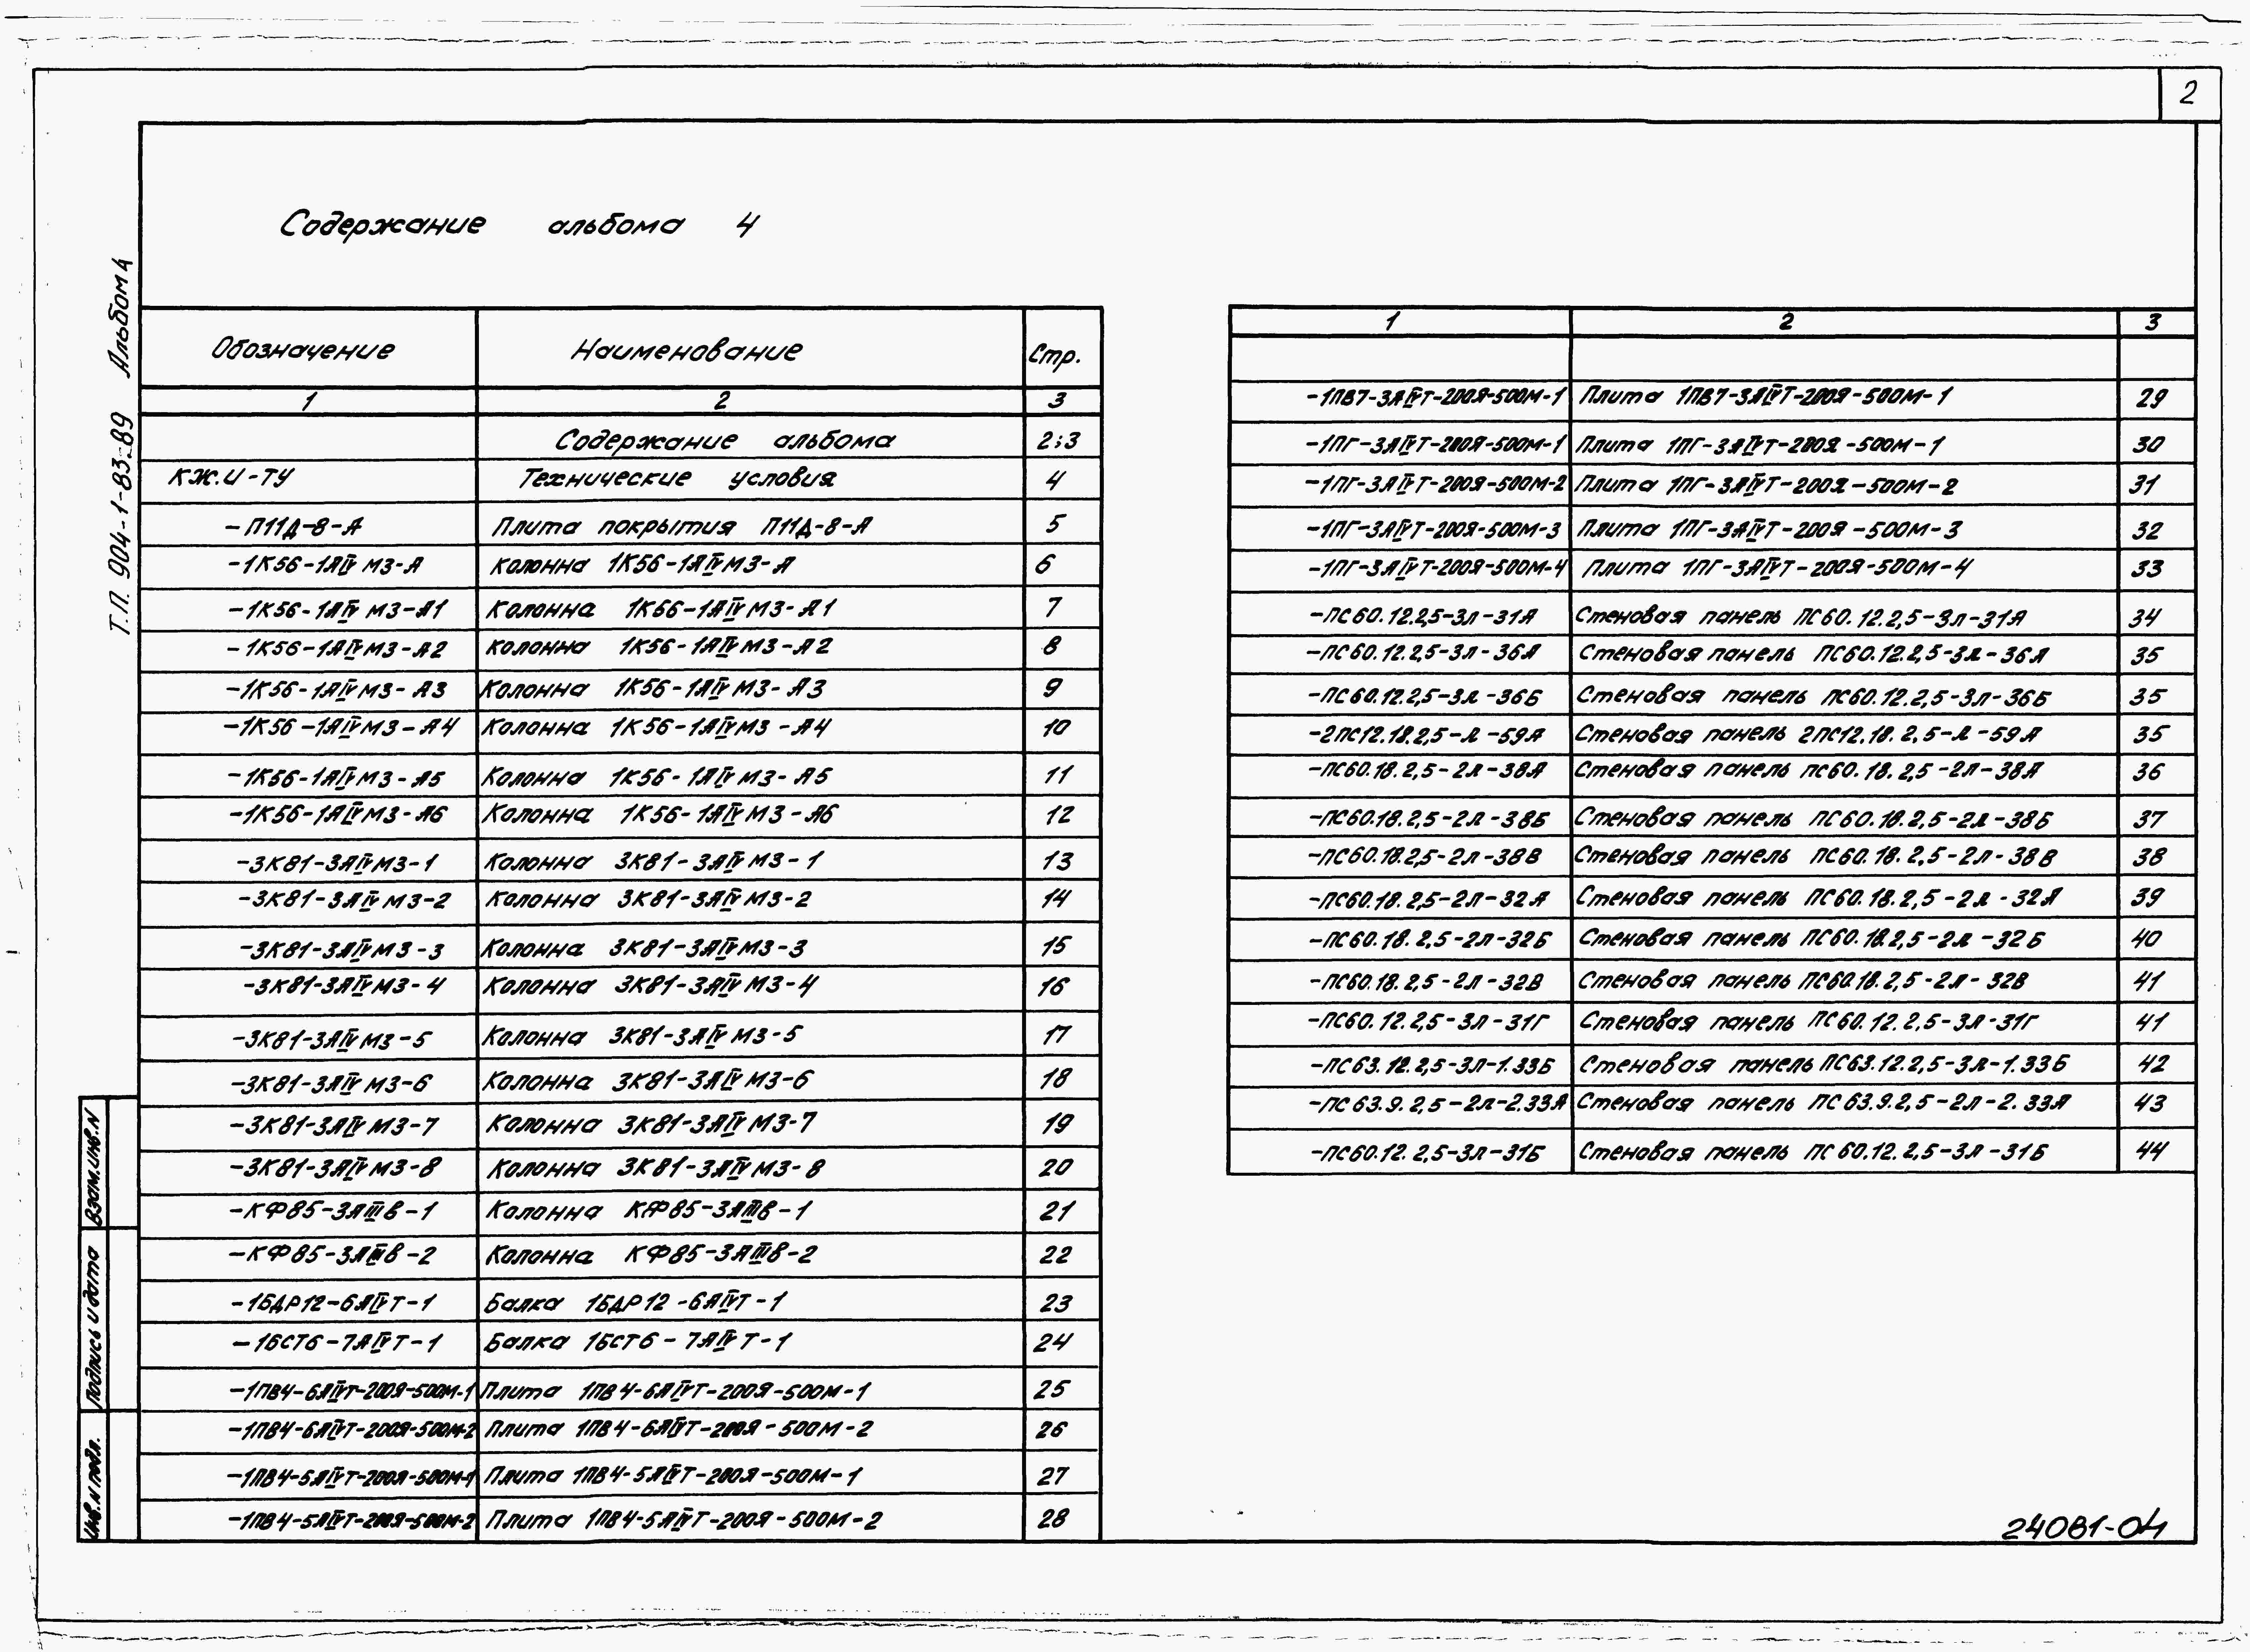 2
Содержание альбома 4
Т.П. 904-1-83.89 Альбом 4
Обозначение Наименование Стр.
1 2 3
Содержание альбома 2;3
КЖ.И-ТУ Технические условия 4
-П11Д-8-А Плита покрытия П11Д-8-А 5
-1К56-1АIVМ3-А Колонна 1К56-1АIVМ3-А 6
-1К56-1АIVМ3-А1 Колонна 1К56-1АIVМ3-А1 7
-1К56-1АIVМ3-А2 Колонна 1К56-1АIVМ3-А2 8
-1К56-1АIVМ3-А3 Колонна 1К56-1АIVМ3-А3 9
-1К56-1АIVМ3-А4 Колонна 1К56-1АIVМ3-А4 10
-1К56-1АIVМ3-А5 Колонна 1К56-1АIVМ3-А5 11
-1К56-1АIVМ3-А6 Колонна 1К56-1АIVМ3-А6 12
-3К81-3АIVМ3-1 Колонна 3К81-3АIVМ3-1 13
-3К81-3АIVМ3-2 Колонна 3К81-3АIVМ3-2 14
-3К81-3АIVМ3-3 Колонна 3К81-3АIVМ3-3 15
-3К81-3АIVМ3-4 Колонна 3К81-3АIVМ3-4 16
-3К81-3АIVМ3-5 Колонна 3К81-3АIVМ3-5 17
-3К81-3АIVМ3-6 Колонна 3К81-3АIVМ3-6 18
-3К81-3АIVМ3-7 Колонна 3К81-3АIVМ3-7 19
-3К81-3АIVМ3-8 Колонна 3К81-3АIVМ3-8 20
-КФ85-3АIIIв-1 Колонна КФ85-3АIIIв-1 21
-КФ85-3АIIIв-2 Колонна КФ85-3АIIIв-2 22
-1БДР12-6АIVТ-1 Балка 1БДР12-6АIVТ-1 23
-1БСТ6-7АIVТ-1 Балка 1БСТ6-7АIVТ-1 24
-1ПВ4-6АIVТ-200Я-500М-1 Плита 1ПВ4-6АIVТ-200Я-500М-1 25
-1ПВ4-6АIVТ-200Я-500М-2 Плита 1ПВ4-6АIVТ-200Я-500М-2 26
-1ПВ4-5АIVТ-200Я-500М-1 Плита 1ПВ4-5АIVТ-200Я-500М-1 27
-1ПВ4-5АIVТ-200Я-500М-2 Плита 1ПВ4-5АIVТ-200Я-500М-2 28
1 2 3
-1ПВ7-3АIVТ-200Я-500М-1 Плита 1ПВ7-3АIVТ-200Я-500М-1 29
-1ПГ-3АIVТ-200Я-500М-1 Плита 1ПГ-3АIVТ-200Я-500М-1 30
-1ПГ-3АIVТ-200Я-500М-2 Плита 1ПГ-3АIVТ-200Я-500М-2 31
-1ПГ-3АIVТ-200Я-500М-3 Плита 1ПГ-3АIVТ-200Я-500М-3 32
-1ПГ-3АIVТ-200Я-500М-4 Плита 1ПГ-3АIVТ-200Я-500М-4 33
-ПС60.12.2,5-3л-31А Стеновая панель ПС60.12.2,5-3л-31А 34
-ПС60.12.2,5-3л-36А Стеновая панель ПС60.12.2,5-3л-36А 35
-ПС60.12.2,5-3л-36Б Стеновая панель ПС60.12.2,5-3л-36Б 35
-2ПС12.18.2,5-л-59А Стеновая панель 2ПС12.18.2,5-л-59А 35
-ПС60.18.2,5-2л-38А Стеновая панель ПС60.18.2,5-2л-38А 36
-ПС60.18.2,5-2л-38Б Стеновая панель ПС60.18.2,5-2л-38Б 37
-ПС60.18.2,5-2л-38В Стеновая панель ПС60.18.2,5-2л-38В 38
-ПС60.18.2,5-2л-32А Стеновая панель ПС60.18.2,5-2л-32А 39
-ПС60.18.2,5-2л-32Б Стеновая панель ПС60.18.2,5-2л-32Б 40
-ПС60.18.2,5-2л-32В Стеновая панель ПС60.18.2,5-2л-32В 41
-ПС60.12.2,5-3л-31Г Стеновая панель ПС60.12.2,5-3л-31Г 41
-ПС63.12.2,5-3л-1.33Б Стеновая панель ПС63.12.2,5-3л-1.33Б 42
-ПС63.9.2,5-2л-2.33А Стеновая панель ПС63.9.2,5-2л-2.33А 43
-ПС60.12.2,5-3л-31Б Стеновая панель ПС60.12.2,5-3л-31Б 44
Взам.инв.N
Подпись и дата
Инв.N подл.
24081-04